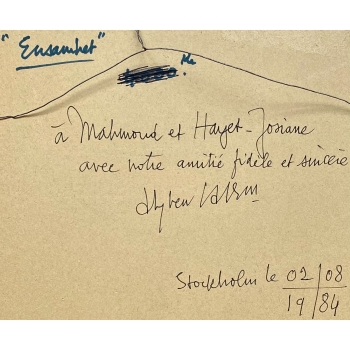 "Ensamhet"
à Mahmoud et Hayet-Josiane
avec notre amitié fidèle et sincère
Stockholm le 02/08
19/84